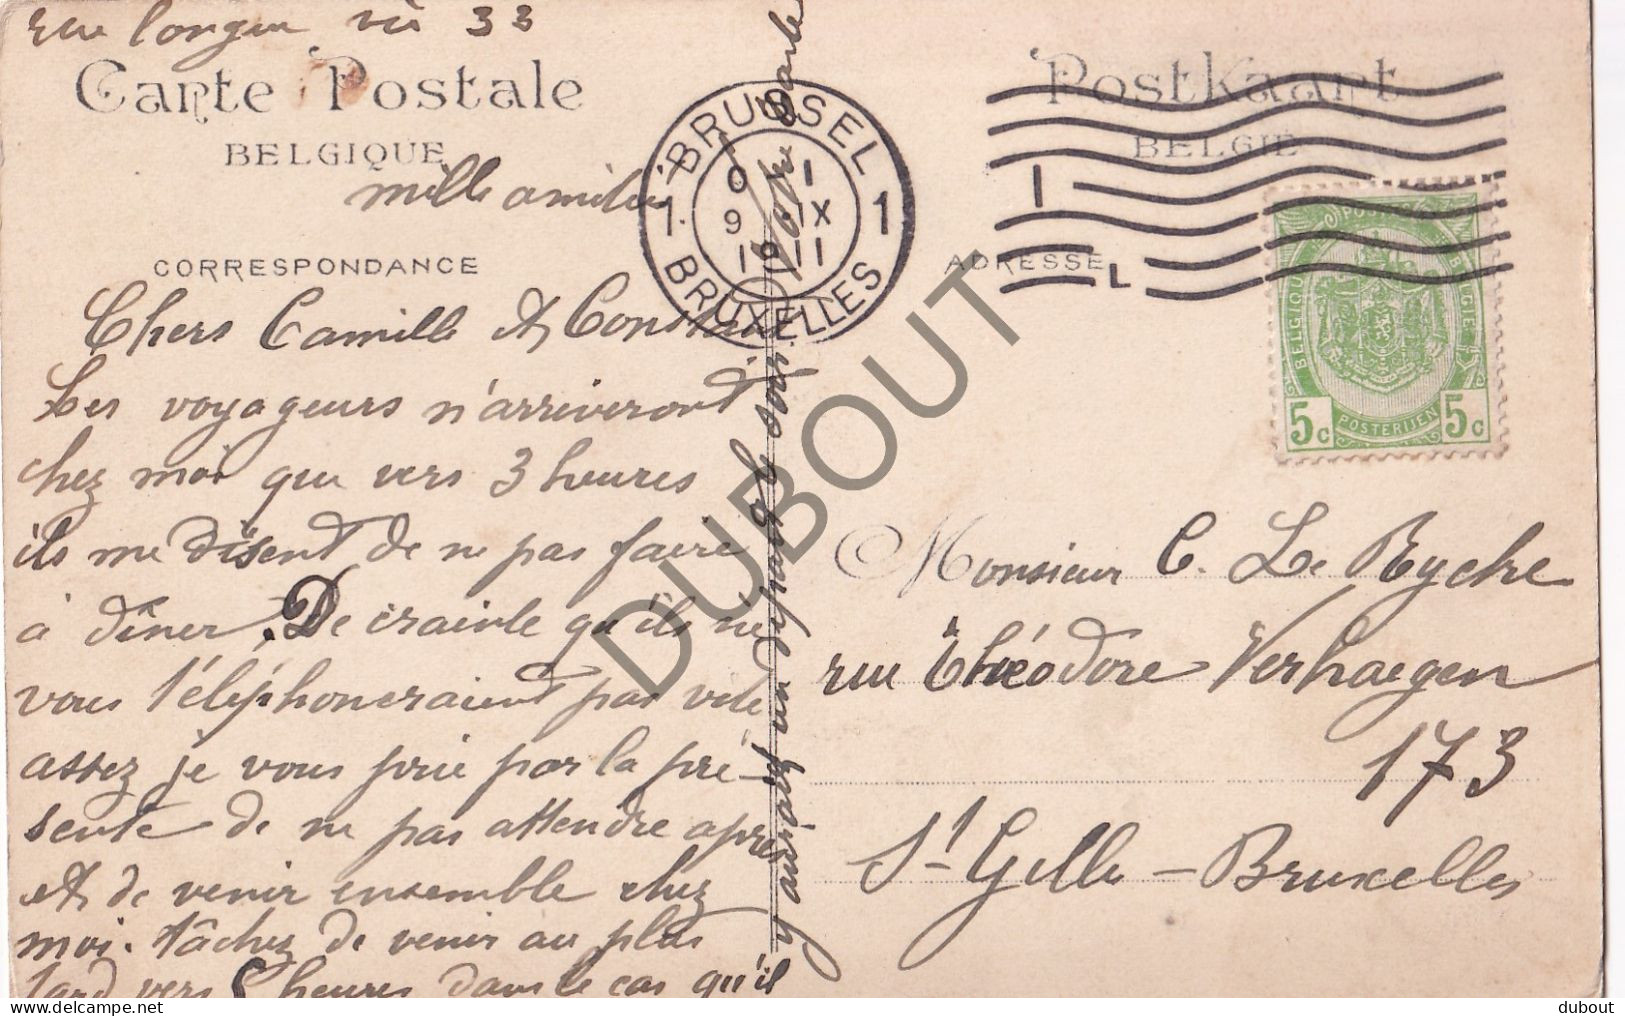 rue longue vie 33
Carte Postale
BELGIQUE
mille amitiés
CORRESPONDANCE
Chers Camille et Constant
Les voyageurs n'arriveront
chez moi que vers 3 heures
ils me disent de ne pas faire
à dîner. De crainte qu'ils ne
vous téléphoneraient pas vite
assez je vous prie par la pré-
sente de ne pas attendre après
et de venir ensemble chez
moi. tâchez de venir au plus
tard vers 5 heures dans le cas qu'il
y aurait un départ le soir.
Votre
BRUSSEL
1 1
0 1
9 IX
19 11
BRUXELLES
Postkaart
BELGIË
ADRESSE
POSTES
BELGIQUE
BELGIË
5c POSTERIJEN 5c
Monsieur C. De Rycke
rue Théodore Verhaegen
173
St Gilles - Bruxelles
DUBOUT
dubout